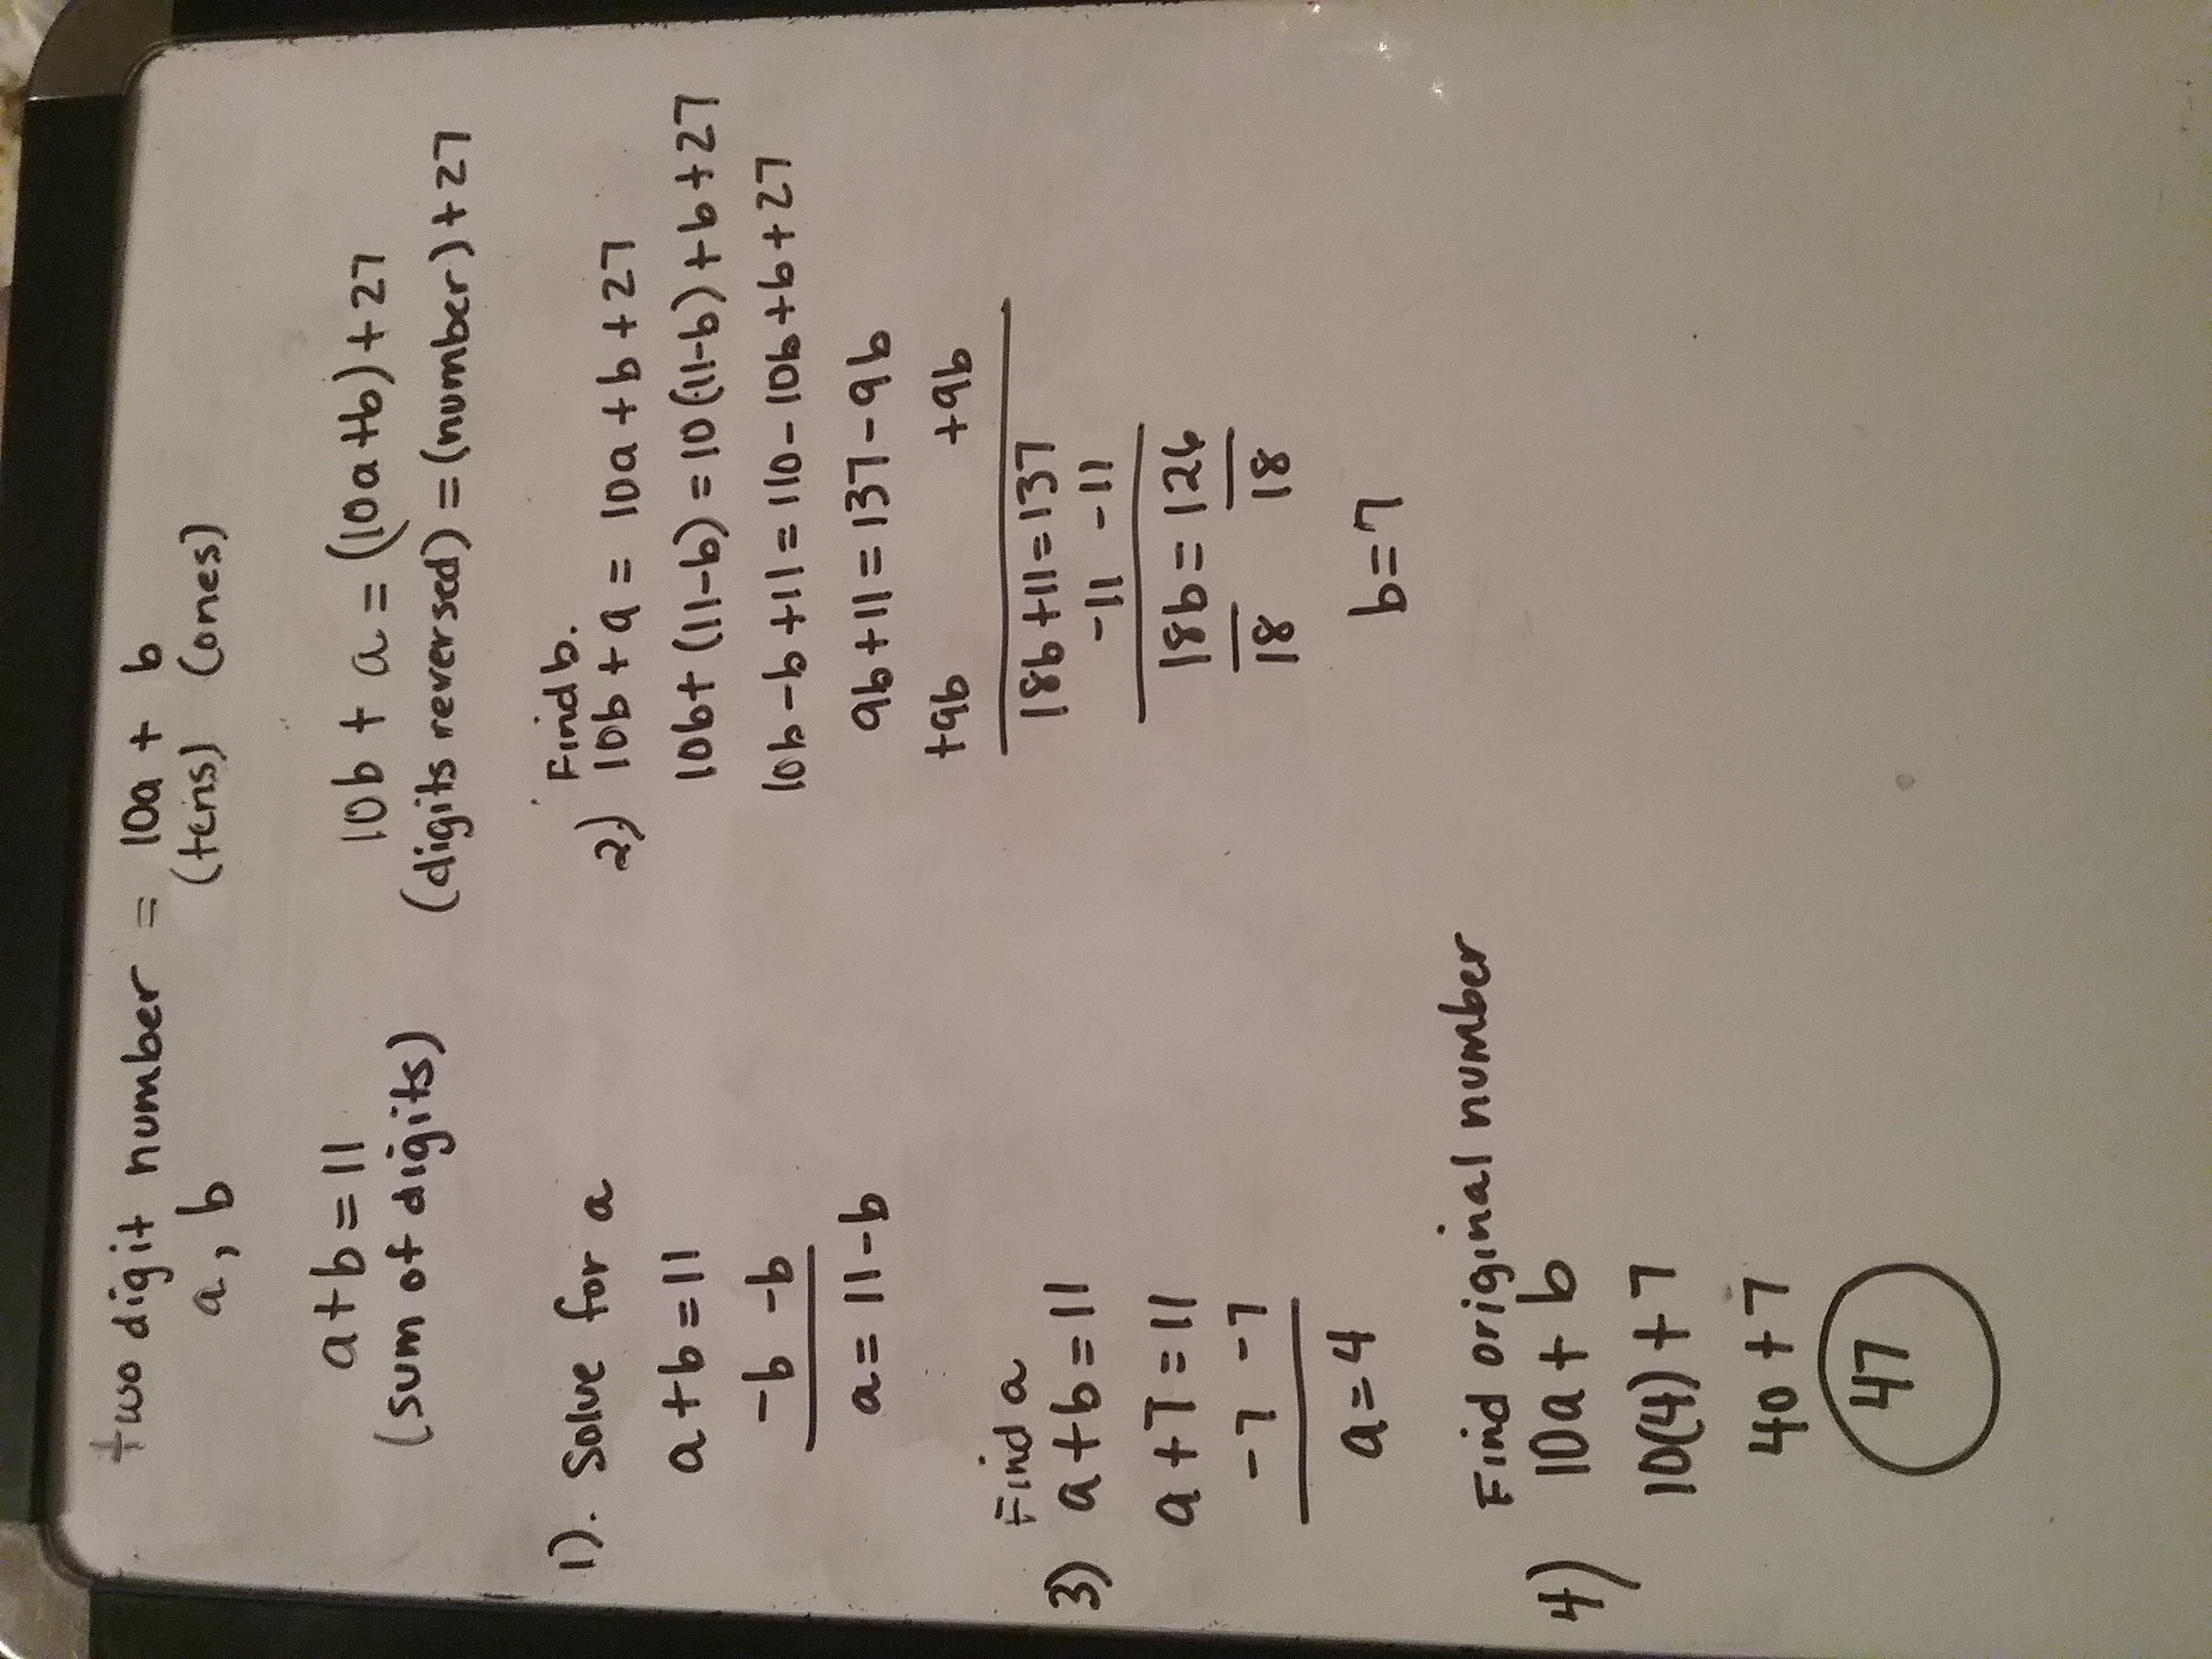 two digit number = 10a + b
a, b (tens) (ones)
a+b=11
(sum of digits)
10b + a = (10a+b)+27
(digits reversed) = (number)+27
1). Solve for a
a+b=11
-b -b
a=11-b
2) Find b.
10b+a = 10a+b+27
10b+(11-b) = 10(11-b)+b+27
10b-b+11=110-10b+b+27
9b+11=137-9b
+9b +9b
18b+11=137
-11 -11
18b=126
18 18
b=7
3) Find a
a+b=11
a+7=11
-7 -7
a=4
4) Find original number
10a+b
10(4)+7
40+7
47